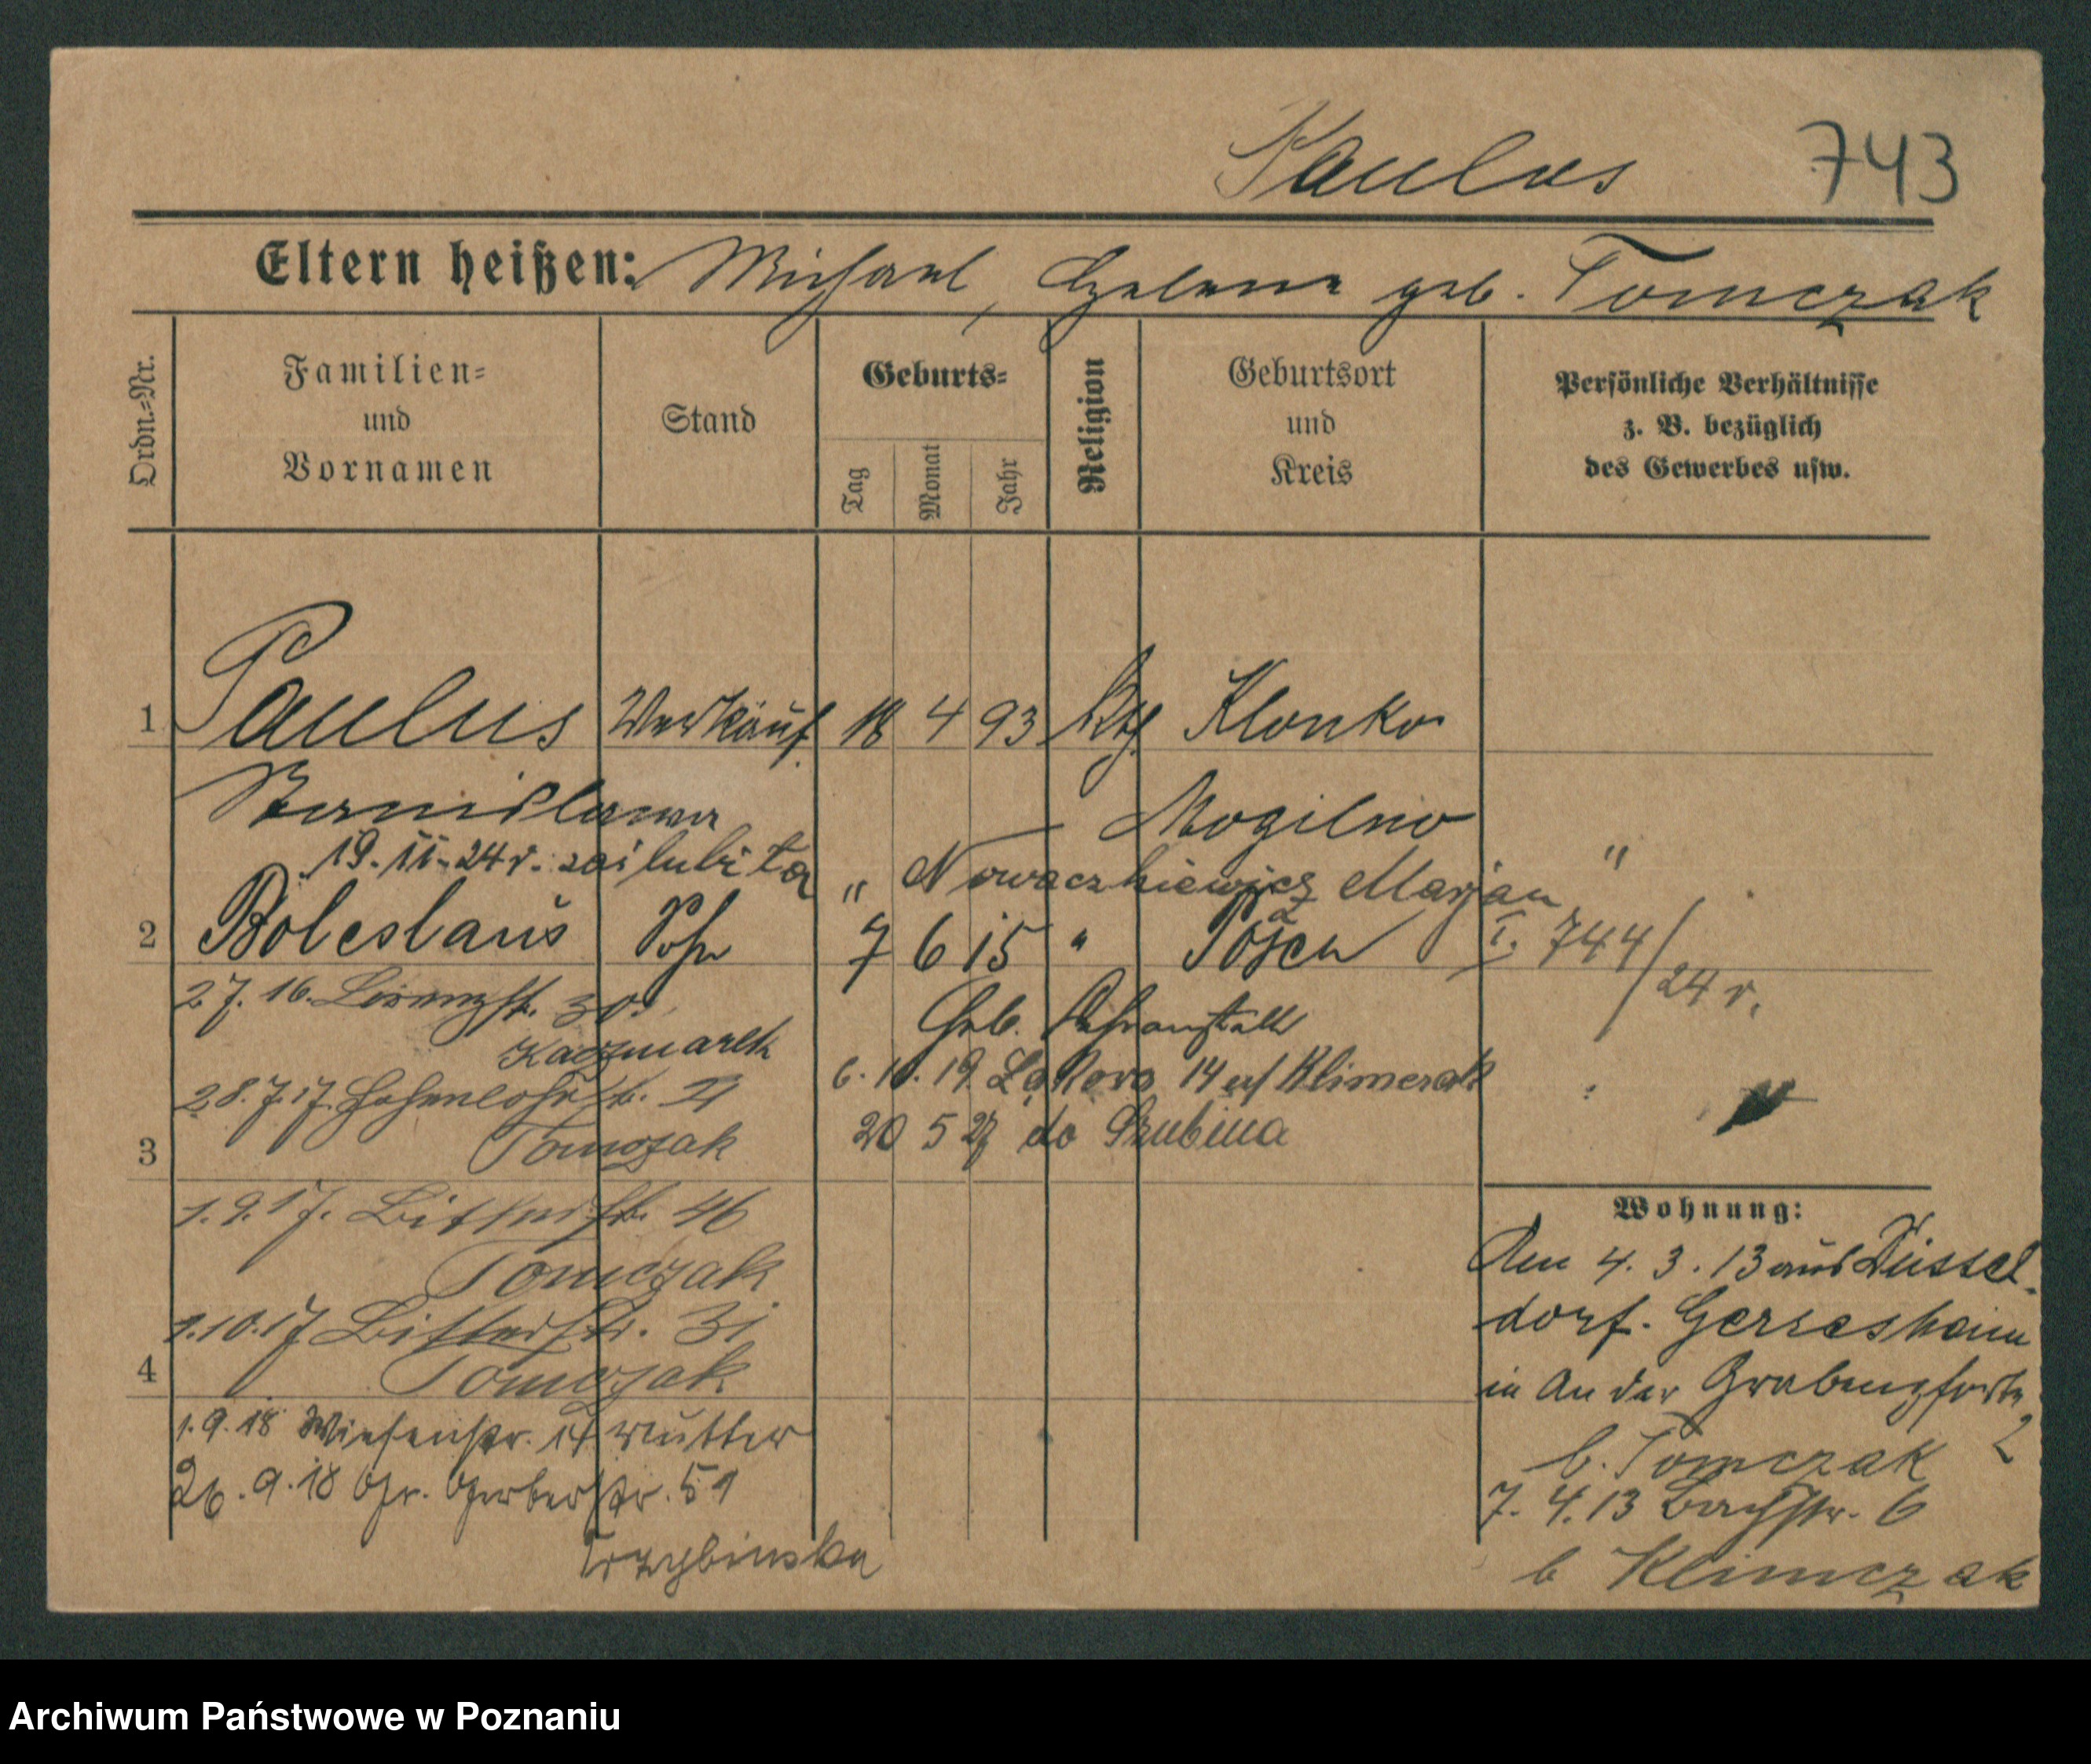 Paulus 743
Eltern heißen: Michael, Helena geb. Tomczak
Ordn.=Nr.
Familien=
und
Vornamen
Stand
Geburts=
Tag
Monat
Jahr
Religion
Geburtsort
und
Kreis
Persönliche Verhältnisse
z. B. bezüglich
des Gewerbes usw.
1 Paulus Verkäuf. 18 4 93 kth. Klonko
Stanislawa Mogilno
19.II.24r. zaślubiła Nowaczkiewicz Marjan
2 Boleslaus Sohn 7 6 15 " Posen I. 744/24 r.
27. 16. 30.
Kaczmarek
Geb. anstalt
28.7.17. Hohenlohestr.
Tomczak
6. 10. 19. Łąkowa 14 Klimczak
20 5 27 do Szubina
3
1.9.17. Bitterstr. 46
Tomczak
1.10.17 Bitterstr. 31
Tomczak
4
1.9.18 Wiesenstr. Mutter
26.9.18 Gr. Gerberstr. 51
Trzybinska
Wohnung:
Am 4.3.13 aus Düssel-
dorf-Gerresheim
in An der Grabenpforte
2
b. Tomczak
7.4.13 Bachstr. 6
b Klimczak
Archiwum Państwowe w Poznaniu